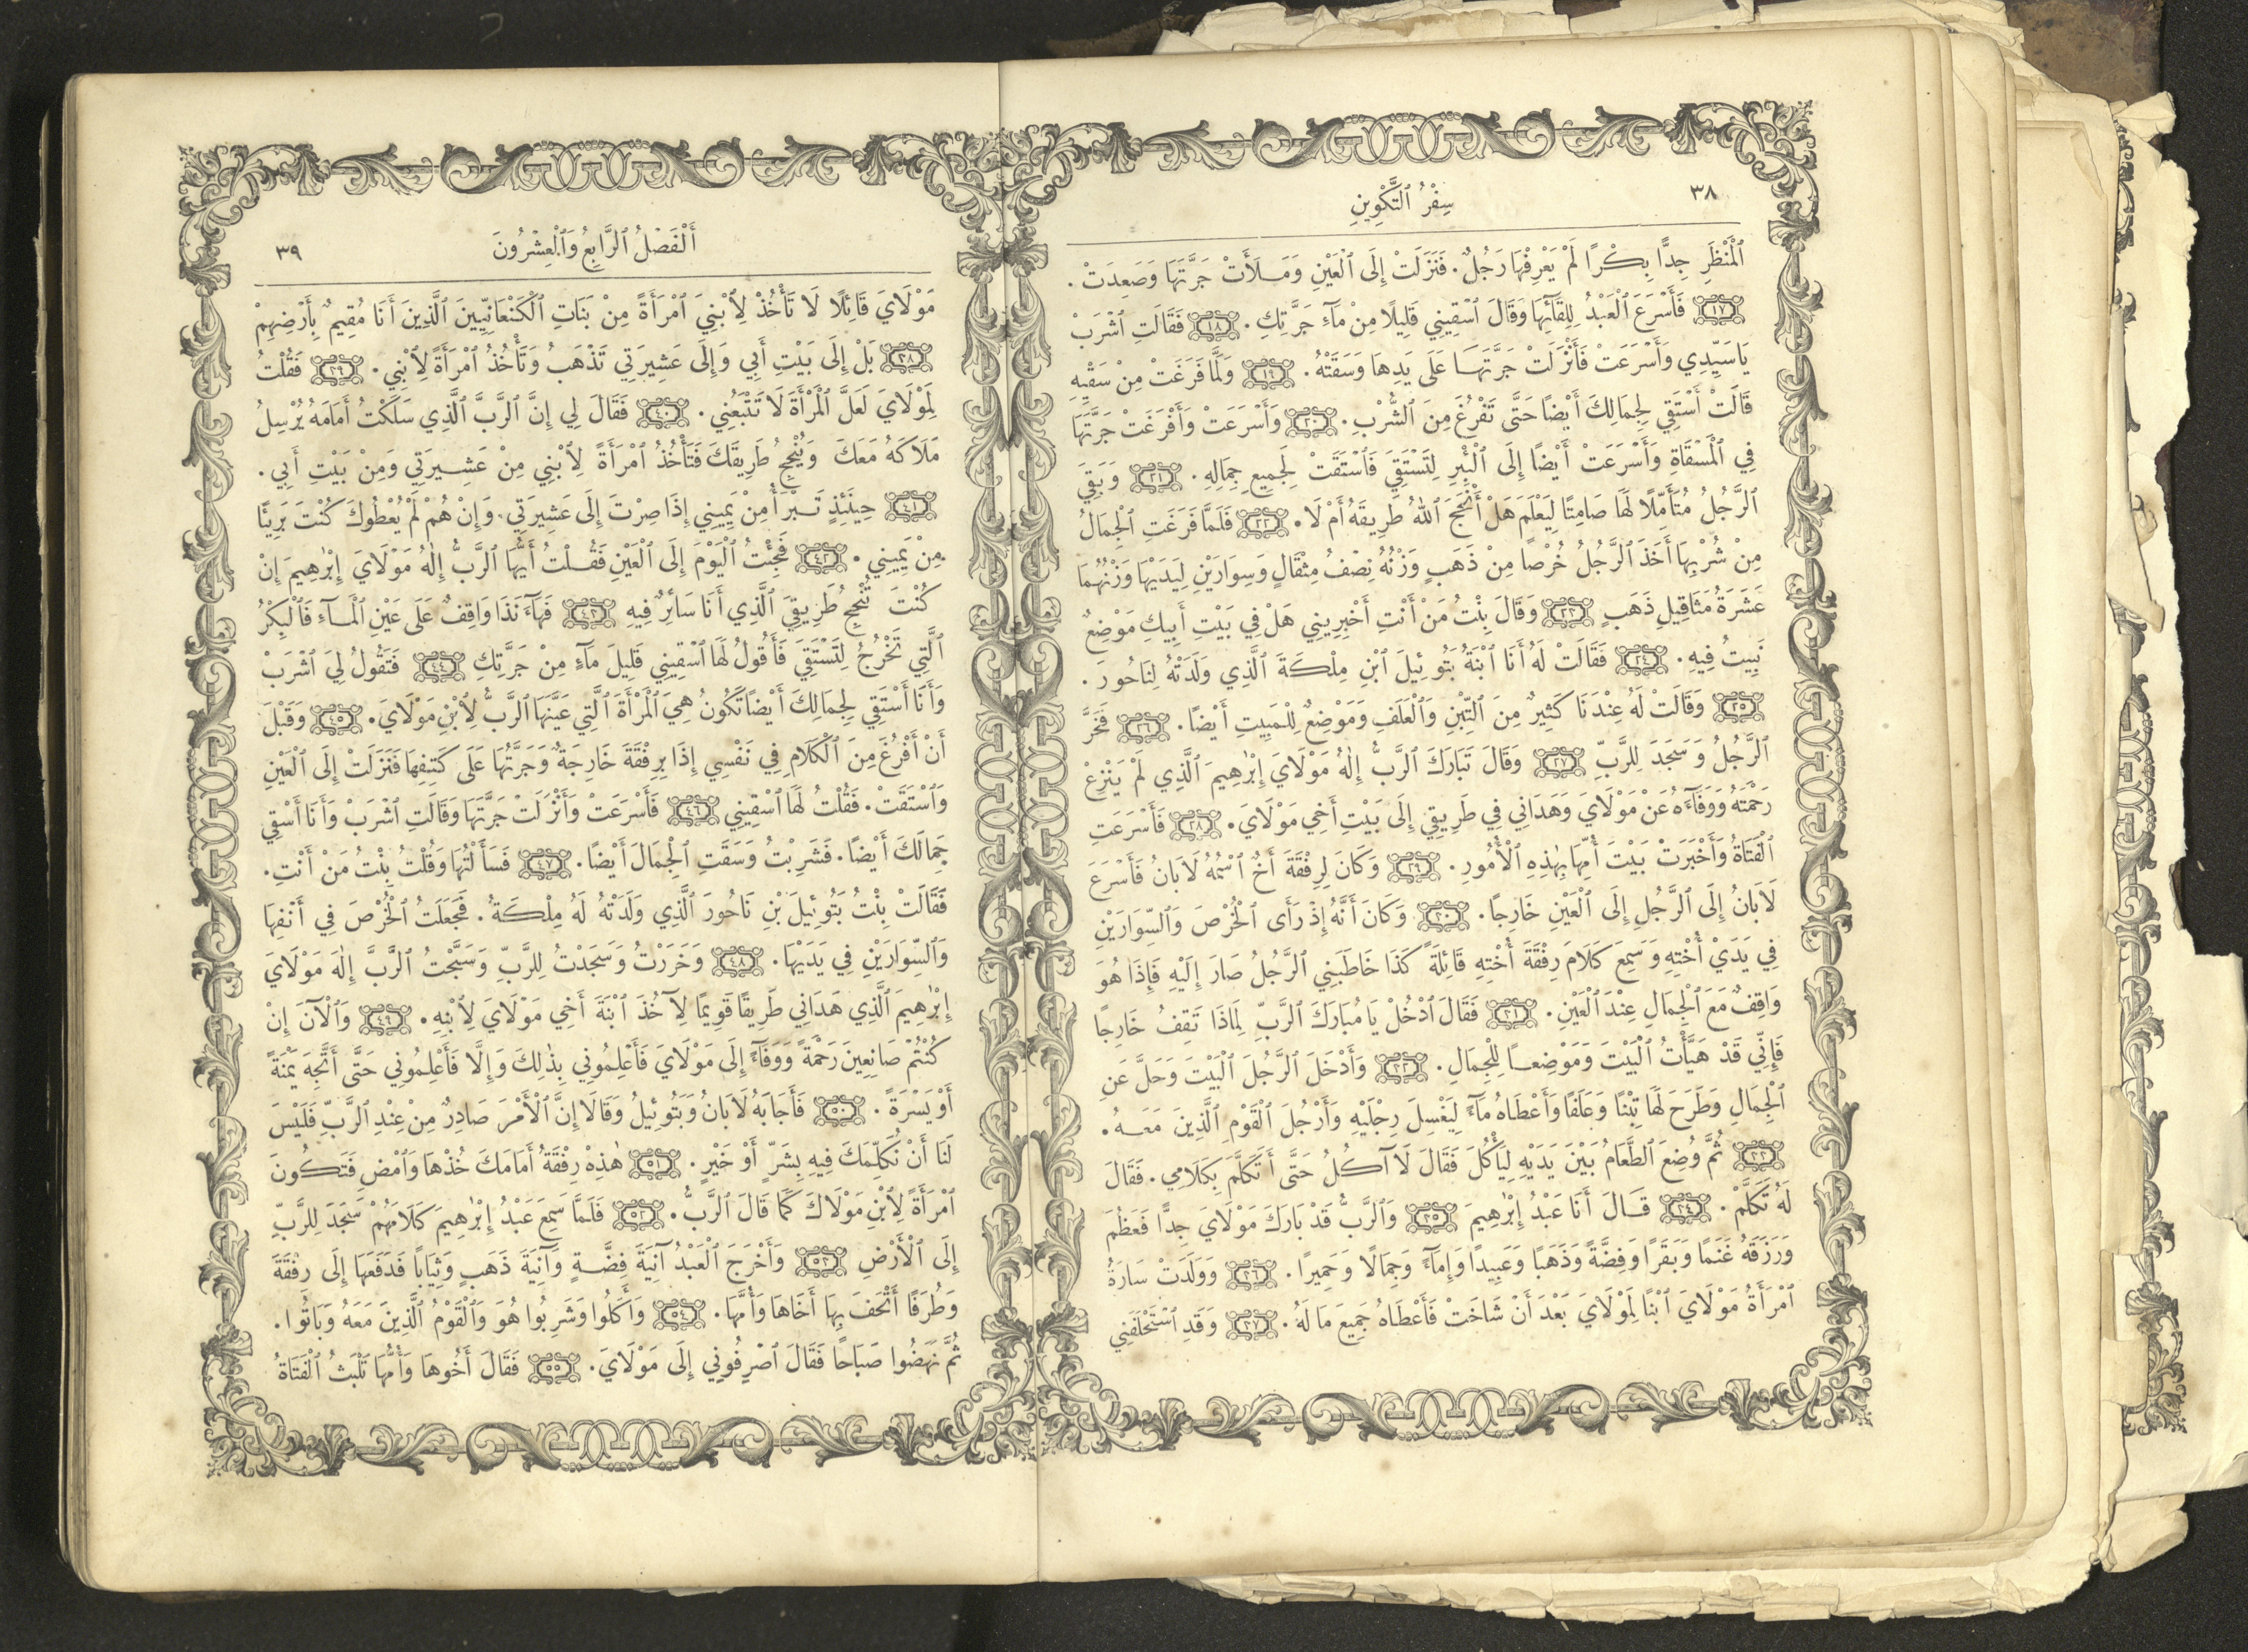 ٣٨
سِفْرُ ٱلتَّكْوِينِ
ٱلْمَنْظَرِ جِدًّا بِكْرًا لَمْ يَعْرِفْهَا رَجُلٌ. فَنَزَلَتْ إِلَى ٱلْعَيْنِ وَمَلَأَتْ جَرَّتَهَا وَصَعِدَتْ.
١٧ فَأَسْرَعَ ٱلْعَبْدُ لِلِقَآئِهَا وَقَالَ ٱسْقِينِي قَلِيلًا مِنْ مَآءِ جَرَّتِكِ. ١٨ فَقَالَتِ ٱشْرَبْ
يَا سَيِّدِي وَأَسْرَعَتْ فَأَنْزَلَتْ جَرَّتَهَا عَلَى يَدِهَا وَسَقَتْهُ. ١٩ وَلَمَّا فَرَغَتْ مِنْ سَقْيِهِ
قَالَتْ أَسْتَقِي لِجِمَالِكَ أَيْضًا حَتَّى تَفْرُغَ مِنَ ٱلشُّرْبِ. ٢٠ وَأَسْرَعَتْ وَأَفْرَغَتْ جَرَّتَهَا
فِي ٱلْمَسْقَاةِ وَأَسْرَعَتْ أَيْضًا إِلَى ٱلْبِئْرِ لِتَسْتَقِيَ فَٱسْتَقَتْ لِجَمِيعِ جِمَالِهِ. ٢١ وَبَقِيَ
ٱلرَّجُلُ مُتَأَمِّلًا لَهَا صَامِتًا لِيَعْلَمَ هَلْ أَنْجَحَ ٱللهُ طَرِيقَهُ أَمْ لَا. ٢٢ فَلَمَّا فَرَغَتِ ٱلْجِمَالُ
مِنْ شُرْبِهَا أَخَذَ ٱلرَّجُلُ خُرْصًا مِنْ ذَهَبٍ وَزْنُهُ نِصْفُ مِثْقَالٍ وَسِوَارَيْنِ لِيَدَيْهَا وَزْنُهُمَا
عَشَرَةُ مَثَاقِيلِ ذَهَبٍ ٢٣ وَقَالَ بِنْتُ مَنْ أَنْتِ أَخْبِرِينِي هَلْ فِي بَيْتِ أَبِيكِ مَوْضِعٌ
نَبِيتُ فِيهِ. ٢٤ فَقَالَتْ لَهُ أَنَا ٱبْنَةُ بَتُوئِيلَ ٱبْنِ مِلْكَةَ ٱلَّذِي وَلَدَتْهُ لِنَاحُورَ.
٢٥ وَقَالَتْ لَهُ عِنْدَنَا كَثِيرٌ مِنَ ٱلتِّبْنِ وَٱلْعَلَفِ وَمَوْضِعٌ لِلْمَبِيتِ أَيْضًا. ٢٦ فَخَرَّ
ٱلرَّجُلُ وَسَجَدَ لِلرَّبِّ ٢٧ وَقَالَ تَبَارَكَ ٱلرَّبُّ إِلٰهُ مَوْلَايَ إِبْرٰهِيمَ ٱلَّذِي لَمْ يَنْزِعْ
رَحْمَتَهُ وَوَفَآءَهُ عَنْ مَوْلَايَ وَهَدَانِي فِي طَرِيقِي إِلَى بَيْتِ أَخِي مَوْلَايَ. ٢٨ فَأَسْرَعَتِ
ٱلْفَتَاةُ وَأَخْبَرَتْ بَيْتَ أُمِّهَا بِهٰذِهِ ٱلْأُمُورِ. ٢٩ وَكَانَ لِرِفْقَةَ أَخٌ ٱسْمُهُ لَابَانُ فَأَسْرَعَ
لَابَانُ إِلَى ٱلرَّجُلِ إِلَى ٱلْعَيْنِ خَارِجًا. ٣٠ وَكَانَ أَنَّهُ إِذْ رَأَى ٱلْخُرْصَ وَٱلسِّوَارَيْنِ
فِي يَدَيْ أُخْتِهِ وَسَمِعَ كَلَامَ رِفْقَةَ أُخْتِهِ قَائِلَةً كَذَا خَاطَبَنِي ٱلرَّجُلُ صَارَ إِلَيْهِ فَإِذَا هُوَ
وَاقِفٌ مَعَ ٱلْجِمَالِ عِنْدَ ٱلْعَيْنِ. ٣١ فَقَالَ ٱدْخُلْ يَا مُبَارَكَ ٱلرَّبِّ لِمَاذَا تَقِفُ خَارِجًا
فَإِنِّي قَدْ هَيَّأْتُ ٱلْبَيْتَ وَمَوْضِعًا لِلْجِمَالِ. ٣٢ وَأَدْخَلَ ٱلرَّجُلَ ٱلْبَيْتَ وَحَلَّ عَنِ
ٱلْجِمَالِ وَطَرَحَ لَهَا تِبْنًا وَعَلَفًا وَأَعْطَاهُ مَآءً لِيَغْسِلَ رِجْلَيْهِ وَأَرْجُلَ ٱلْقَوْمِ ٱلَّذِينَ مَعَهُ.
٣٣ ثُمَّ وُضِعَ ٱلطَّعَامُ بَيْنَ يَدَيْهِ لِيَأْكُلَ فَقَالَ لَا آكُلُ حَتَّى أَتَكَلَّمَ بِكَلَامِي. فَقَالَ
لَهُ تَكَلَّمْ. ٣٤ قَالَ أَنَا عَبْدُ إِبْرٰهِيمَ ٣٥ وَٱلرَّبُّ قَدْ بَارَكَ مَوْلَايَ جِدًّا فَعَظُمَ
وَرَزَقَهُ غَنَمًا وَبَقَرًا وَفِضَّةً وَذَهَبًا وَعَبِيدًا وَإِمَآءً وَجِمَالًا وَحَمِيرًا. ٣٦ وَوَلَدَتْ سَارَةُ
ٱمْرَأَةُ مَوْلَايَ ٱبْنًا لِمَوْلَايَ بَعْدَ أَنْ شَاخَتْ فَأَعْطَاهُ جَمِيعَ مَا لَهُ. ٣٧ وَقَدِ ٱسْتَحْلَفَنِي
أَلْفَصْلُ ٱلرَّابِعُ وَٱلْعِشْرُونَ
٣٩
مَوْلَايَ قَائِلًا لَا تَأْخُذْ لِٱبْنِيَ ٱمْرَأَةً مِنْ بَنَاتِ ٱلْكَنْعَانِيِّينَ ٱلَّذِينَ أَنَا مُقِيمٌ بِأَرْضِهِمْ
٣٨ بَلْ إِلَى بَيْتِ أَبِي وَإِلَى عَشِيرَتِي تَذْهَبُ وَتَأْخُذُ ٱمْرَأَةً لِٱبْنِي. ٣٩ فَقُلْتُ
لِمَوْلَايَ لَعَلَّ ٱلْمَرْأَةَ لَا تَتْبَعُنِي. ٤٠ فَقَالَ لِي إِنَّ ٱلرَّبَّ ٱلَّذِي سَلَكْتُ أَمَامَهُ يُرْسِلُ
مَلَاكَهُ مَعَكَ وَيُنْجِحُ طَرِيقَكَ فَتَأْخُذُ ٱمْرَأَةً لِٱبْنِي مِنْ عَشِيرَتِي وَمِنْ بَيْتِ أَبِي.
٤١ حِينَئِذٍ تَبْرَأُ مِنْ يَمِينِي إِذَا صِرْتَ إِلَى عَشِيرَتِي. وَإِنْ هُمْ لَمْ يُعْطُوكَ كُنْتَ بَرِيئًا
مِنْ يَمِينِي. ٤٢ فَجِئْتُ ٱلْيَوْمَ إِلَى ٱلْعَيْنِ فَقُلْتُ أَيُّهَا ٱلرَّبُّ إِلٰهُ مَوْلَايَ إِبْرٰهِيمَ إِنْ
كُنْتَ تُنْجِحُ طَرِيقِيَ ٱلَّذِي أَنَا سَائِرٌ فِيهِ ٤٣ فَهَآءَنَذَا وَاقِفٌ عَلَى عَيْنِ ٱلْمَآءِ فَٱلْبِكْرُ
ٱلَّتِي تَخْرُجُ لِتَسْتَقِيَ فَأَقُولُ لَهَا ٱسْقِينِي قَلِيلَ مَآءٍ مِنْ جَرَّتِكِ ٤٤ فَتَقُولُ لِيَ ٱشْرَبْ
وَأَنَا أَسْتَقِي لِجِمَالِكَ أَيْضًا تَكُونُ هِيَ ٱلْمَرْأَةَ ٱلَّتِي عَيَّنَهَا ٱلرَّبُّ لِٱبْنِ مَوْلَايَ. ٤٥ وَقَبْلَ
أَنْ أَفْرُغَ مِنَ ٱلْكَلَامِ فِي نَفْسِي إِذَا بِرِفْقَةَ خَارِجَةً وَجَرَّتُهَا عَلَى كَتِفِهَا فَنَزَلَتْ إِلَى ٱلْعَيْنِ
وَٱسْتَقَتْ. فَقُلْتُ لَهَا ٱسْقِينِي ٤٦ فَأَسْرَعَتْ وَأَنْزَلَتْ جَرَّتَهَا وَقَالَتِ ٱشْرَبْ وَأَنَا أَسْقِي
جِمَالَكَ أَيْضًا. فَشَرِبْتُ وَسَقَتِ ٱلْجِمَالَ أَيْضًا. ٤٧ فَسَأَلْتُهَا وَقُلْتُ بِنْتُ مَنْ أَنْتِ.
فَقَالَتْ بِنْتُ بَتُوئِيلَ بْنِ نَاحُورَ ٱلَّذِي وَلَدَتْهُ لَهُ مِلْكَةُ. فَجَعَلْتُ ٱلْخُرْصَ فِي أَنْفِهَا
وَٱلسِّوَارَيْنِ فِي يَدَيْهَا. ٤٨ وَخَرَرْتُ وَسَجَدْتُ لِلرَّبِّ وَسَبَّحْتُ ٱلرَّبَّ إِلٰهَ مَوْلَايَ
إِبْرٰهِيمَ ٱلَّذِي هَدَانِي طَرِيقًا قَوِيمًا لِآخُذَ ٱبْنَةَ أَخِي مَوْلَايَ لِٱبْنِهِ. ٤٩ وَٱلْآنَ إِنْ
كُنْتُمْ صَانِعِينَ رَحْمَةً وَوَفَآءً إِلَى مَوْلَايَ فَأَعْلِمُونِي بِذٰلِكَ وَإِلَّا فَأَعْلِمُونِي حَتَّى أَتَّجِهَ يَمْنَةً
أَوْ يَسْرَةً. ٥٠ فَأَجَابَهُ لَابَانُ وَبَتُوئِيلُ وَقَالَا إِنَّ ٱلْأَمْرَ صَادِرٌ مِنْ عِنْدِ ٱلرَّبِّ فَلَيْسَ
لَنَا أَنْ نُكَلِّمَكَ فِيهِ بِشَرٍّ أَوْ خَيْرٍ. ٥١ هٰذِهْ رِفْقَةُ أَمَامَكَ خُذْهَا وَٱمْضِ فَتَكُونَ
ٱمْرَأَةً لِٱبْنِ مَوْلَاكَ كَمَا قَالَ ٱلرَّبُّ. ٥٢ فَلَمَّا سَمِعَ عَبْدُ إِبْرٰهِيمَ كَلَامَهُمْ سَجَدَ لِلرَّبِّ
إِلَى ٱلْأَرْضِ ٥٣ وَأَخْرَجَ ٱلْعَبْدُ آنِيَةَ فِضَّةٍ وَآنِيَةَ ذَهَبٍ وَثِيَابًا فَدَفَعَهَا إِلَى رِفْقَةَ
وَطُرَفًا أَتْحَفَ بِهَا أَخَاهَا وَأُمَّهَا. ٥٤ وَأَكَلُوا وَشَرِبُوا هُوَ وَٱلْقَوْمُ ٱلَّذِينَ مَعَهُ وَبَاتُوا.
ثُمَّ نَهَضُوا صَبَاحًا فَقَالَ ٱصْرِفُونِي إِلَى مَوْلَايَ. ٥٥ فَقَالَ أَخُوهَا وَأُمُّهَا تَلْبَثُ ٱلْفَتَاةُ